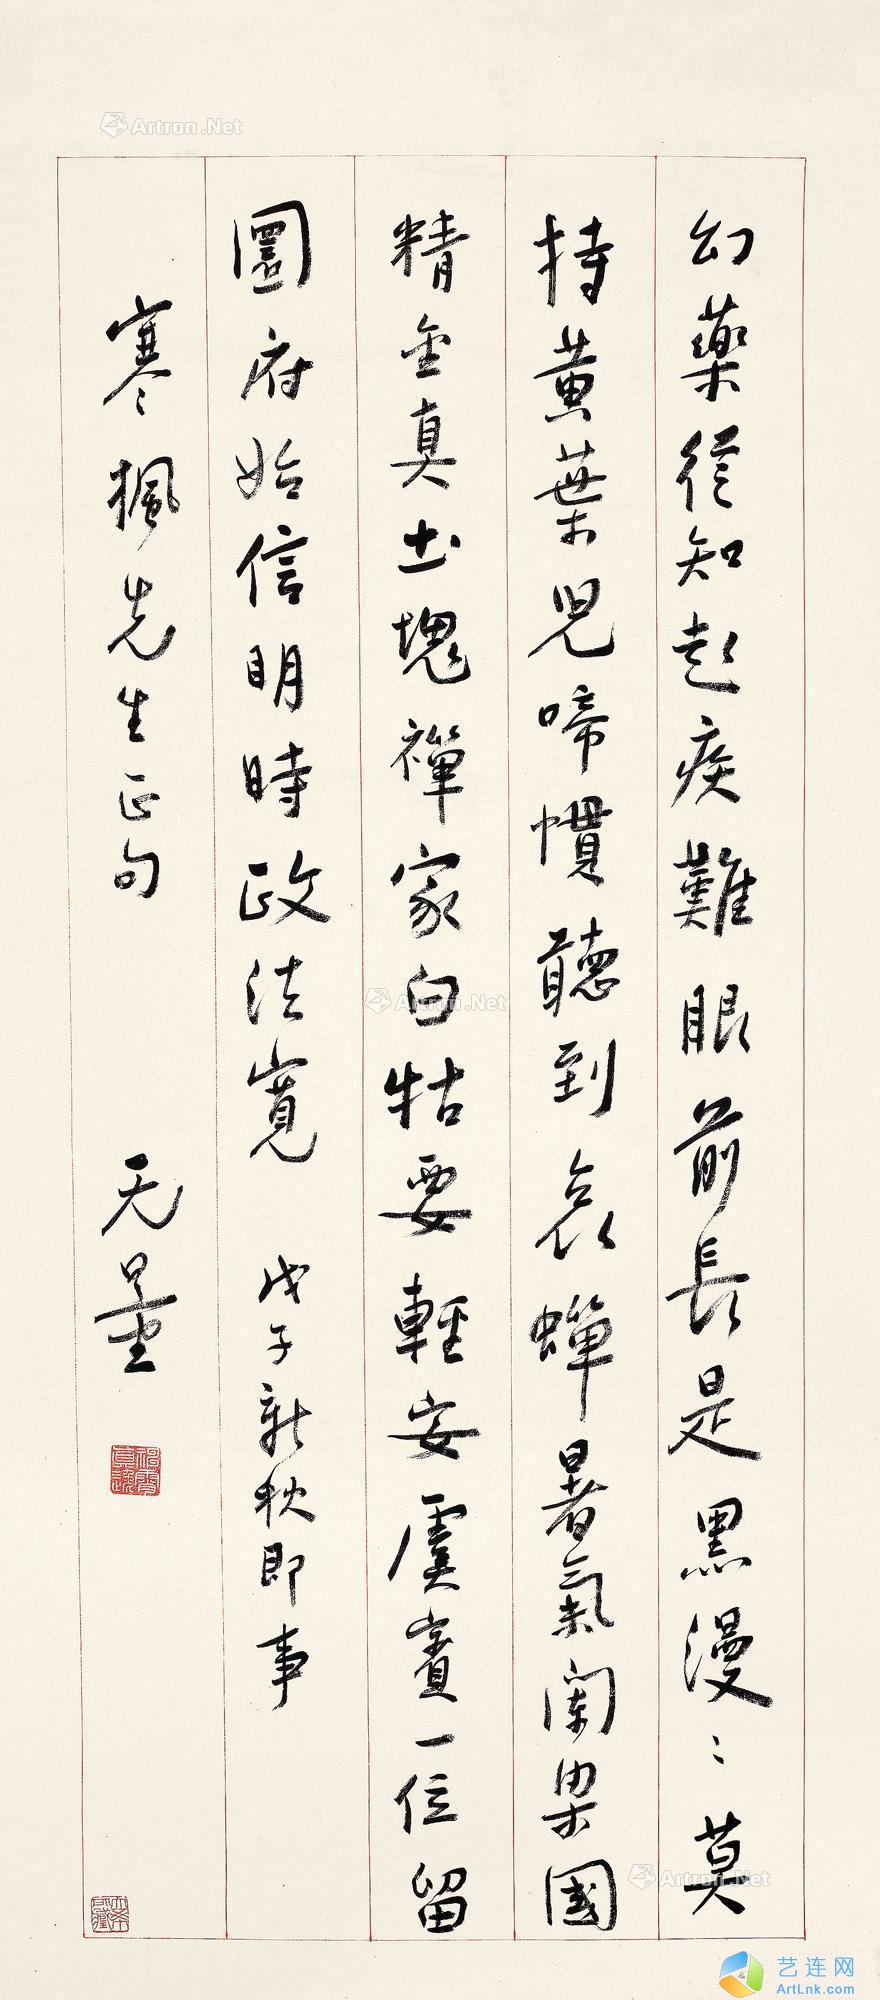 幻藥從知起疾難眼前長是黑漫〻莫
持黃葉兒啼慣聽到哀蟬暑氣闌梁國
精金真土塊禪家白牯要輕安虞賓一位留
圜府始信明時政法寬 戊子新秋即事
寒楓先生正句 无量
Artron.Net
Artron.Net
Artron.Net
艺连网
ArtLnk.com